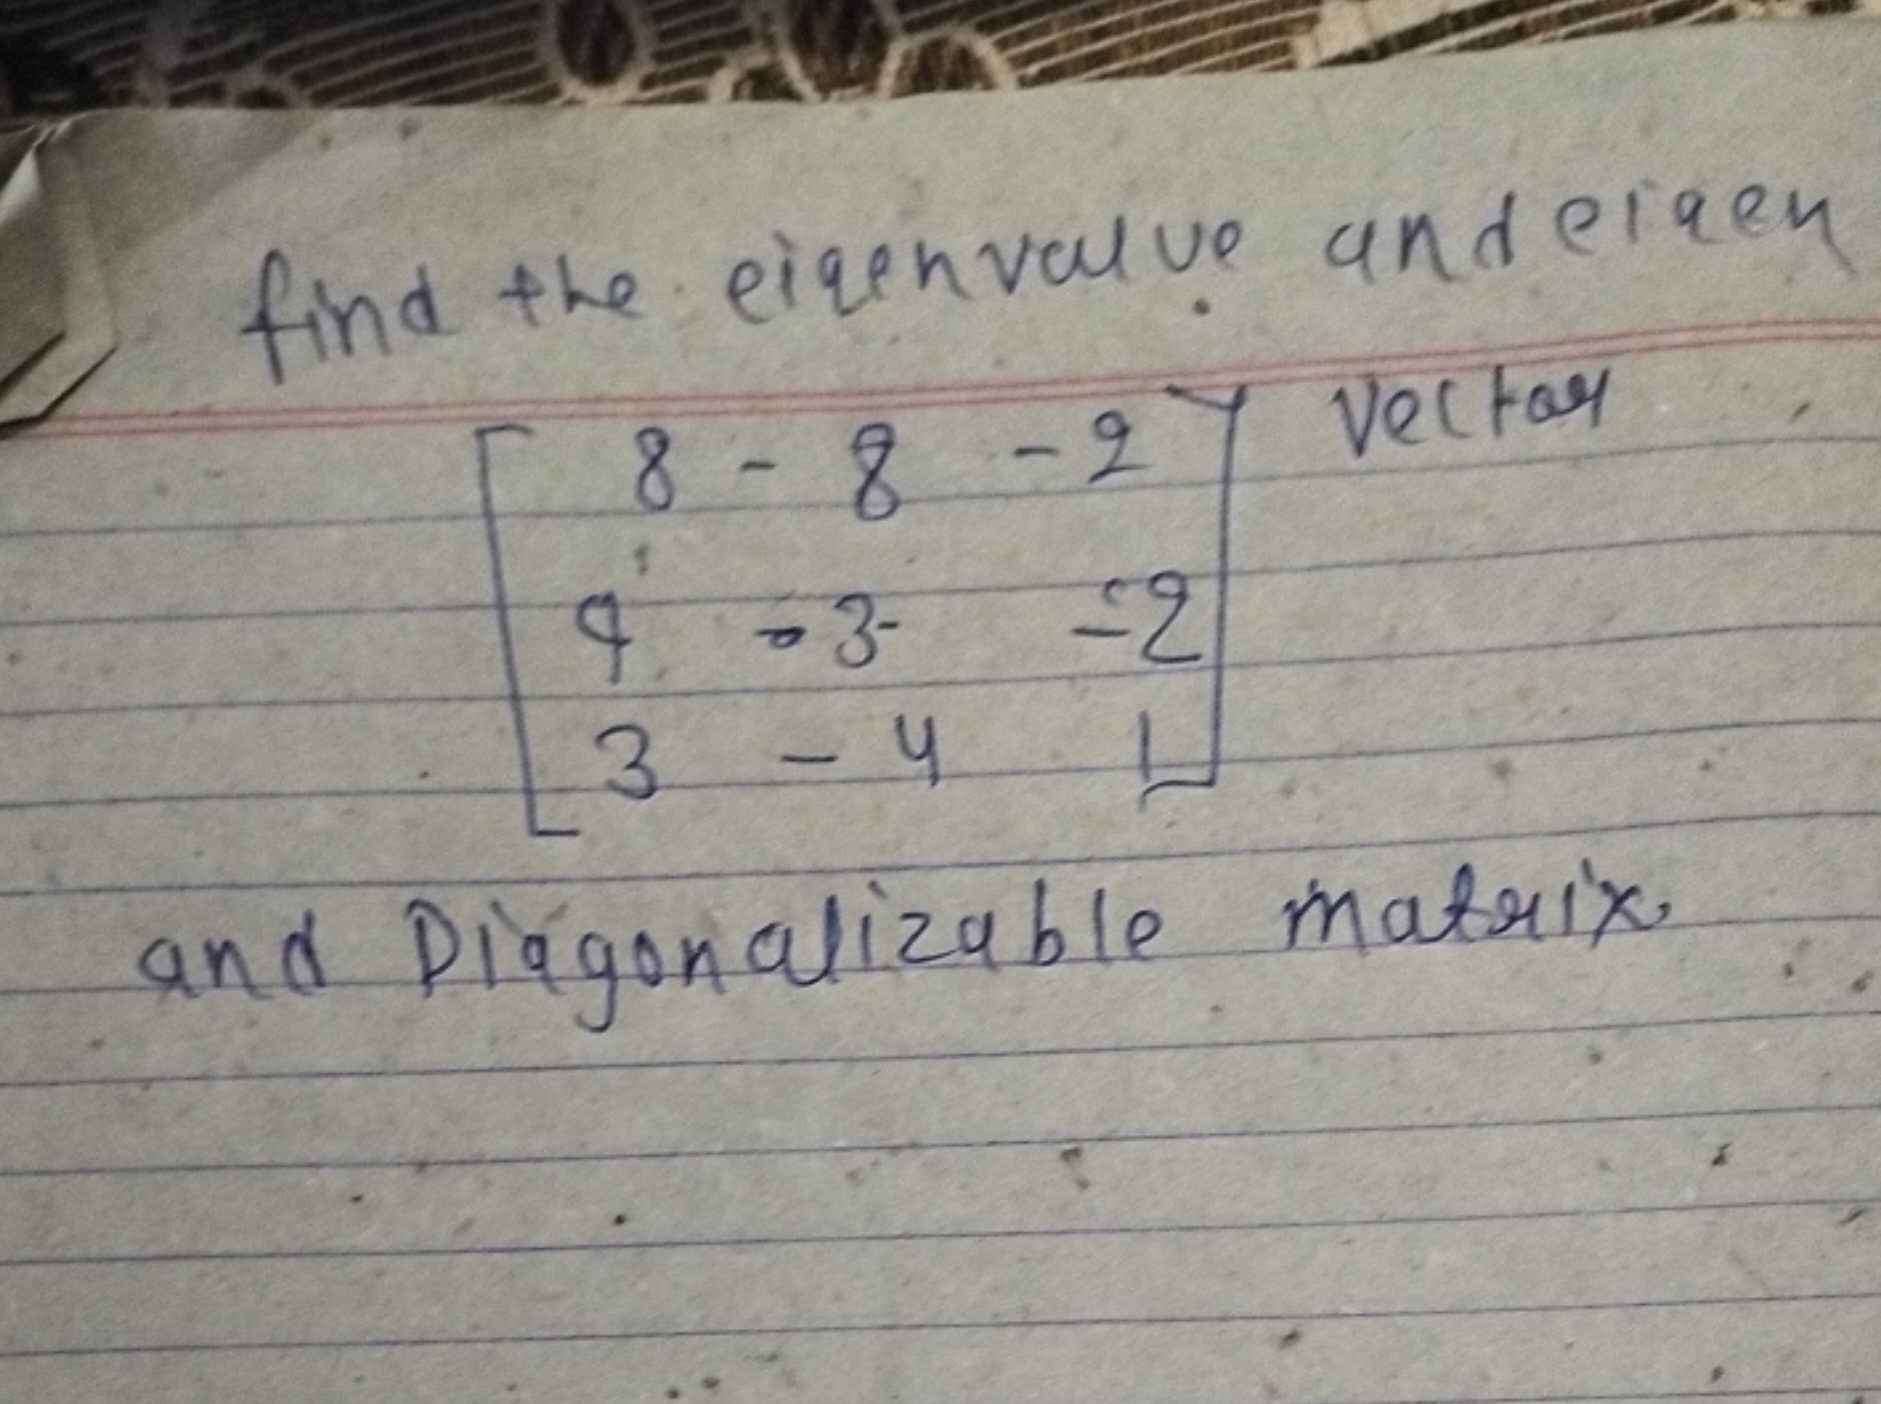 find the eigenvalue and eigen
vector
8 - 8 -2
4 -3 -2
3 - 4 1
and Diagonalizable matrix.